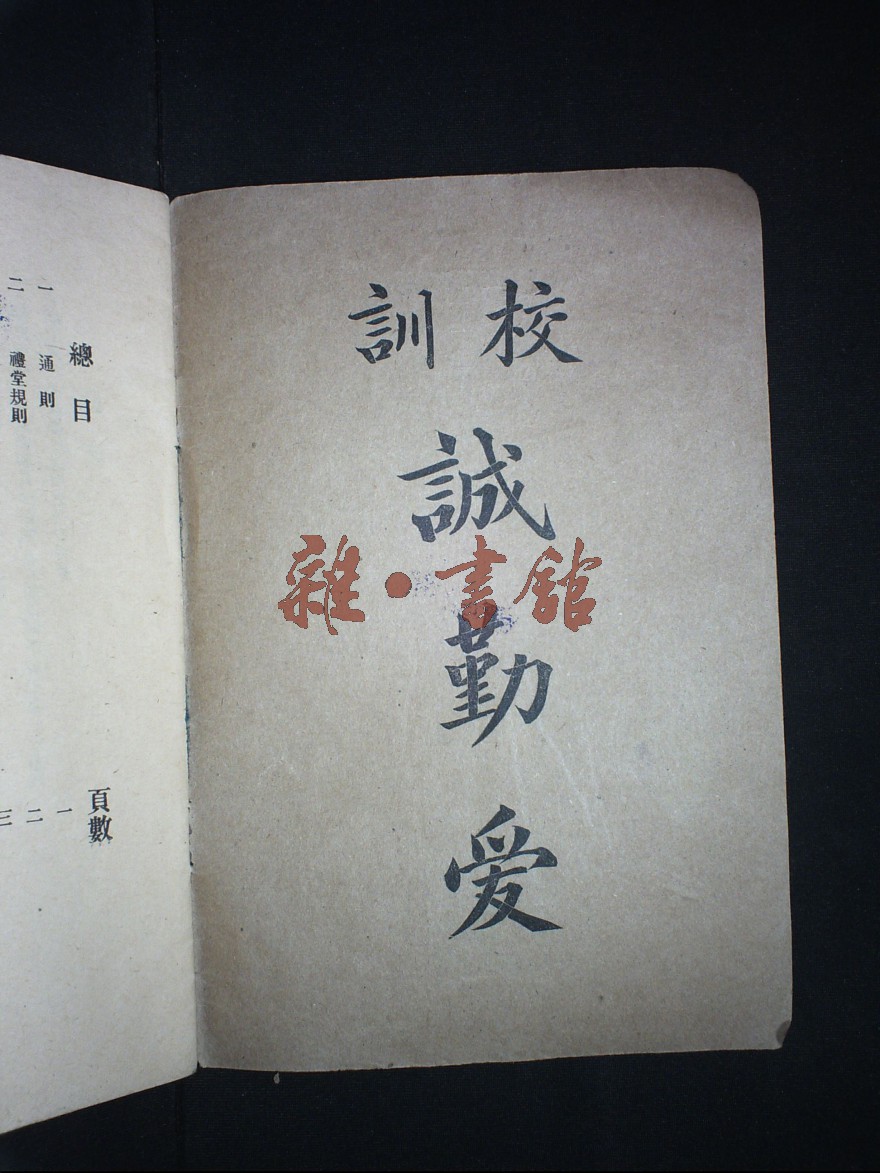 校訓
誠
勤
爱
雜·書館
總目
頁數
一 通則 一
二 禮堂規則 二
三